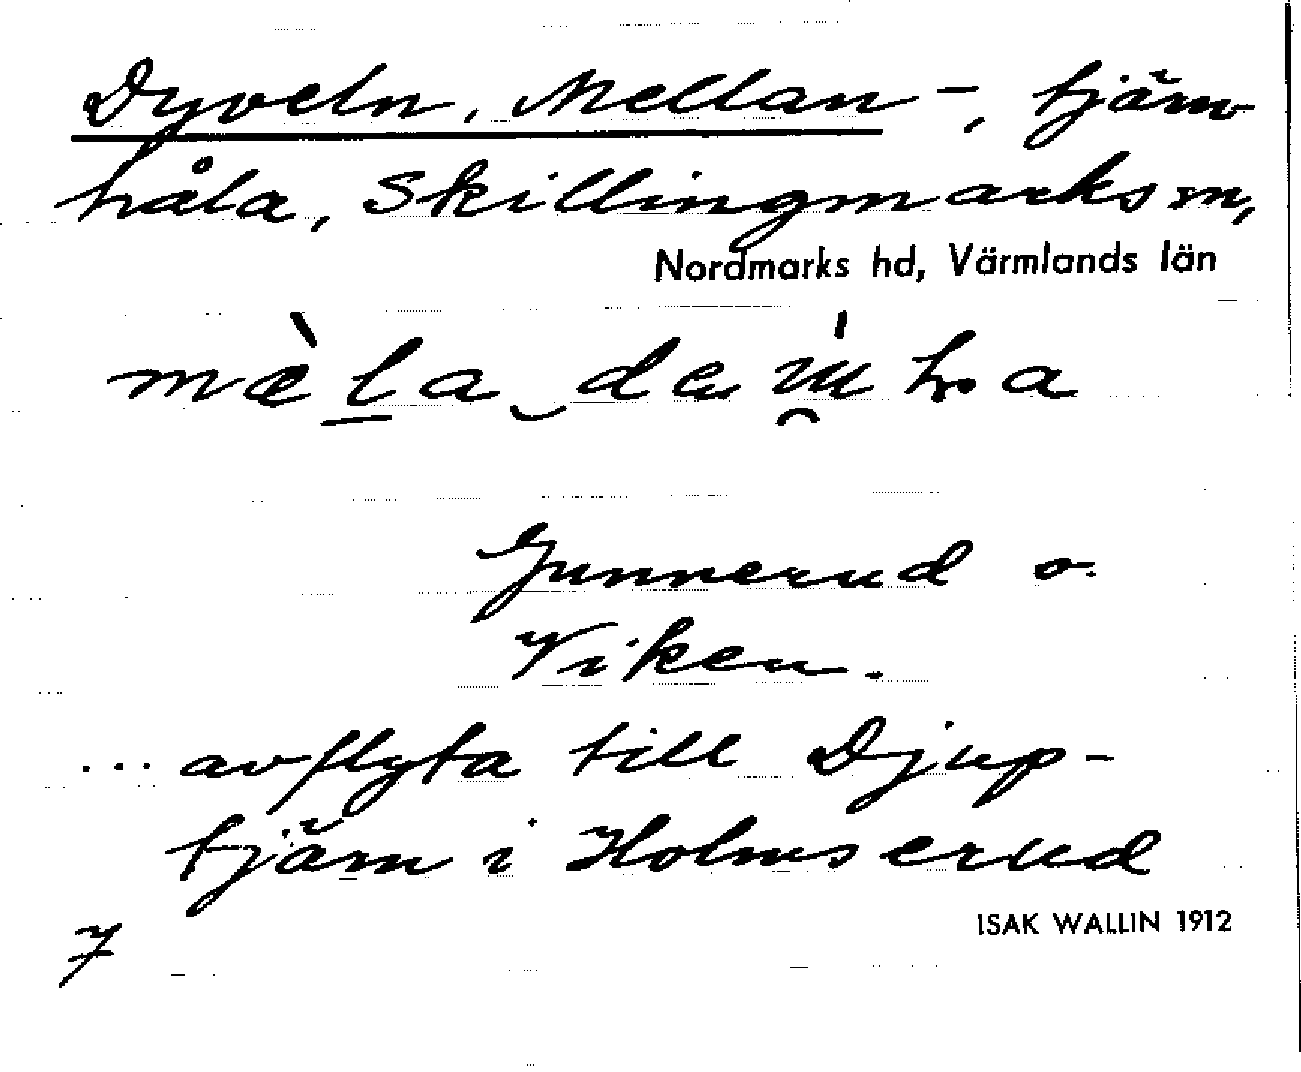 Dyveln, Mellan-, tjärn
håla, Skillingmarks sn,
Nordmarks hd, Värmlands län
Gunnerud o.
Viken.
... avflyta till Djup-
tjärn i Holmserud
7
ISAK WALLIN 1912